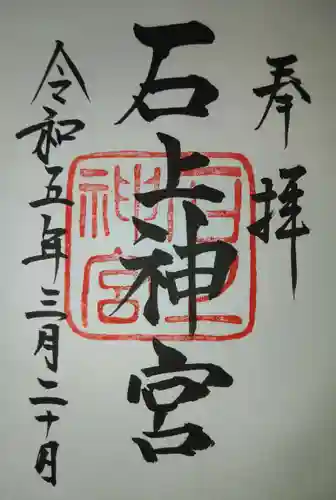 奉拝
石上神宮
令和五年三月二十日
石上
神宮